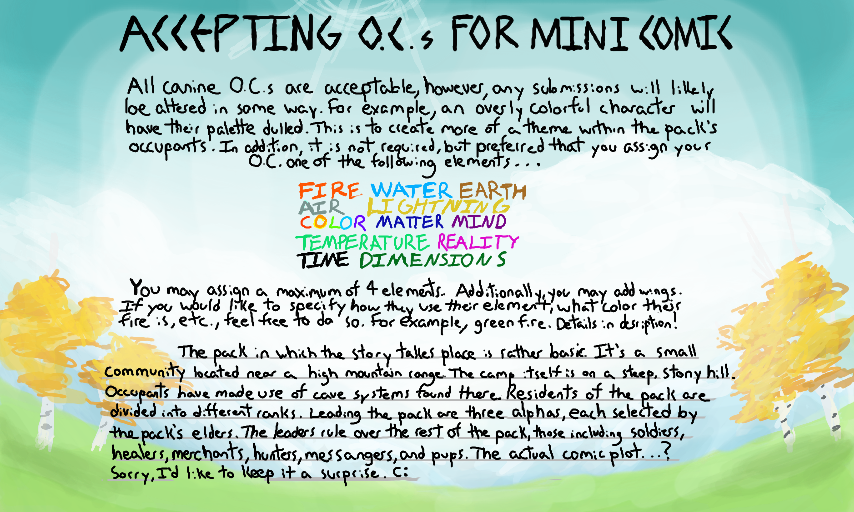 ACCEPTING O.C.s FOR MINI COMIC
All canine O.C.s are acceptable, however, any submissions will likely
be altered in some way. For example, an overly colorful character will
have their palette dulled. This is to create more of a theme within the pack's
occupants. In addition, it is not required, but preferred that you assign your
O.C. one of the following elements...
FIRE WATER EARTH
AIR LIGHTNING
COLOR MATTER MIND
TEMPERATURE REALITY
TIME DIMENSIONS
You may assign a maximum of 4 elements. Additionally, you may add wings.
If you would like to specify how they use their element, what color their
fire is, etc., feel free to do so. For example, green fire. Details in desription!
The pack in which the story takes place is rather basic. It's a small
community located near a high mountain range. The camp itself is on a steep, stony hill.
Occupants have made use of cave systems found there. Residents of the pack are
divided into different ranks. Leading the pack are three alphas, each selected by
the pack's elders. The leaders rule over the rest of the pack, those including soldiers,
healers, merchants, hunters, messangers, and pups. The actual comic plot...?
Sorry, I'd like to keep it a surprise. C: